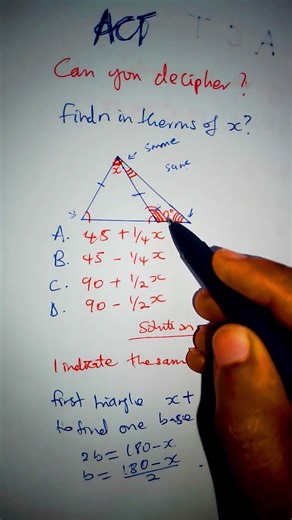 ACT
Can you decipher?
Find n in therms of x?
same
same
x
A. 45 + 1/4x
B. 45 - 1/4x
C. 90 + 1/2x
D. 90 - 1/2x
Solution
I indicate the same
first triangle x +
to find one base
2b = 180 - x
b = 180 - x
2